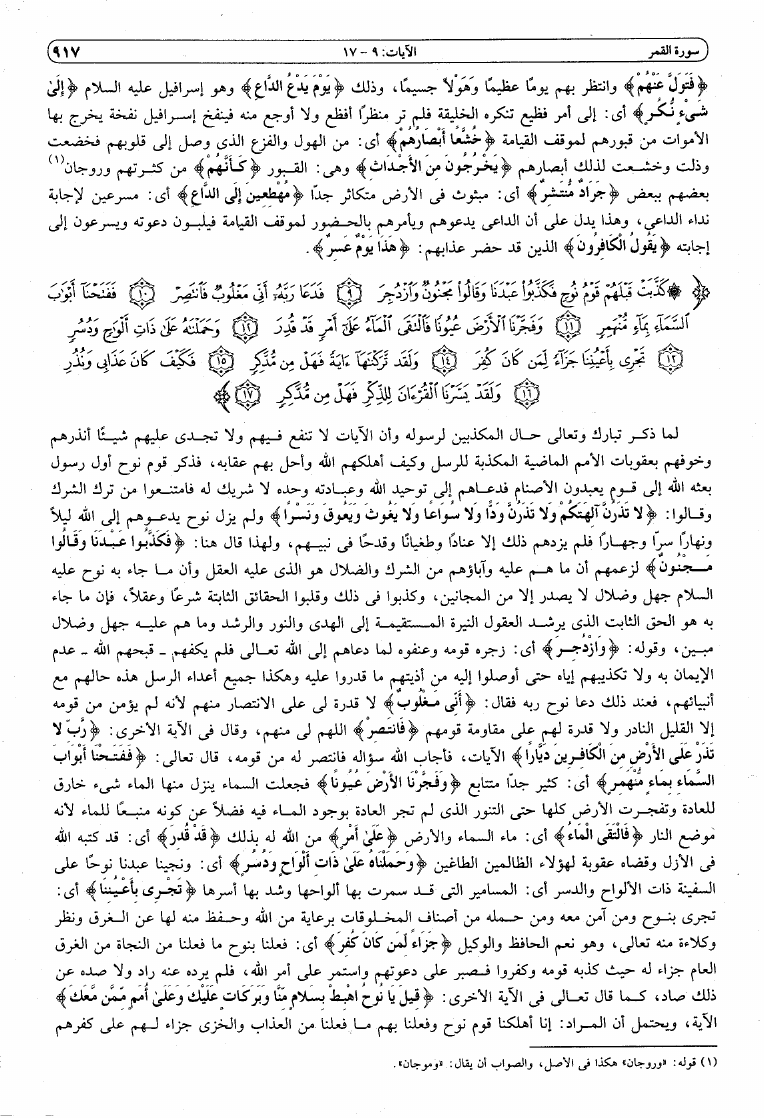 سورة القمر الآيات: ٩ - ١٧ ٩١٧
﴿فَتَوَلَّ عَنْهُمْ﴾ وانتظر بهم يومًا عظيمًا وَهَوْلاً جسيمًا، وذلك ﴿يَوْمَ يَدْعُ الدَّاعِ﴾ وهو إسرافيل عليه السلام ﴿إِلَىٰ
شَيْءٍ نُّكُرٍ﴾ أى: إلى أمر فظيع تنكره الخليقة فلم تر منظرًا أفظع ولا أوجع منه فينفخ إسرافيل نفخة يخرج بها
الأموات من قبورهم لموقف القيامة ﴿خُشَّعًا أَبْصَارُهُمْ﴾ أى: من الهول والفزع الذى وصل إلى قلوبهم فخضعت
وذلت وخشعت لذلك أبصارهم ﴿يَخْرُجُونَ مِنَ الأَجْدَاثِ﴾ وهى: القبور ﴿كَأَنَّهُمْ﴾ من كثرتهم وروجان(١)
بعضهم ببعض ﴿جَرَادٌ مُّنتَشِرٌ﴾ أى: مبثوث فى الأرض متكاثر جدًا ﴿مُهْطِعِينَ إِلَى الدَّاعِ﴾ أى: مسرعين لإجابة
نداء الداعى، وهذا يدل على أن الداعى يدعوهم ويأمرهم بالحضور لموقف القيامة فيلبون دعوته ويسرعون إلى
إجابته ﴿يَقُولُ الْكَافِرُونَ﴾ الذين قد حضر عذابهم: ﴿هَذَا يَوْمٌ عَسِرٌ﴾.
﴿۞ كَذَّبَتْ قَبْلَهُمْ قَوْمُ نُوحٍ فَكَذَّبُوا۟ عَبْدَنَا وَقَالُوا۟ مَجْنُونٌ وَٱزْدُجِرَ ٩ فَدَعَا رَبَّهُۥٓ أَنِّى مَغْلُوبٌ فَٱنتَصِرْ ١٠ فَفَتَحْنَآ أَبْوَٰبَ
ٱلسَّمَآءِ بِمَآءٍ مُّنْهَمِرٍ ١١ وَفَجَّرْنَا ٱلْأَرْضَ عُيُونًا فَٱلْتَقَى ٱلْمَآءُ عَلَىٰٓ أَمْرٍ قَدْ قُدِرَ ١٢ وَحَمَلْنَٰهُ عَلَىٰ ذَاتِ أَلْوَٰحٍ وَدُسُرٍ
١٣ تَجْرِى بِأَعْيُنِنَا جَزَآءً لِّمَن كَانَ كُفِرَ ١٤ وَلَقَد تَّرَكْنَٰهَآ ءَايَةً فَهَلْ مِن مُّدَّكِرٍ ١٥ فَكَيْفَ كَانَ عَذَابِى وَنُذُرِ
١٦ وَلَقَدْ يَسَّرْنَا ٱلْقُرْءَانَ لِلذِّكْرِ فَهَلْ مِن مُّدَّكِرٍ ١٧﴾
لما ذكر تبارك وتعالى حال المكذبين لرسوله وأن الآيات لا تنفع فيهم ولا تجدى عليهم شيئًا أنذرهم
وخوفهم بعقوبات الأمم الماضية المكذبة للرسل وكيف أهلكهم الله وأحل بهم عقابه، فذكر قوم نوح أول رسول
بعثه الله إلى قوم يعبدون الأصنام فدعاهم إلى توحيد الله وعبادته وحده لا شريك له فامتنعوا من ترك الشرك
وقالوا: ﴿لا تَذَرُنَّ آلِهَتَكُمْ وَلا تَذَرُنَّ وَدًّا وَلا سُوَاعًا وَلا يَغُوثَ وَيَعُوقَ وَنَسْرًا﴾ ولم يزل نوح يدعوهم إلى الله ليلاً
ونهارًا سرًا وجهارًا فلم يزدهم ذلك إلا عنادًا وطغيانًا وقدحًا فى نبيهم، ولهذا قال هنا: ﴿فَكَذَّبُوا عَبْدَنَا وَقَالُوا
مَجْنُونٌ﴾ لزعمهم أن ما هم عليه وآباؤهم من الشرك والضلال هو الذى عليه العقل وأن ما جاء به نوح عليه
السلام جهل وضلال لا يصدر إلا من المجانين، وكذبوا فى ذلك وقلبوا الحقائق الثابتة شرعًا وعقلاً، فإن ما جاء
به هو الحق الثابت الذى يرشد العقول النيرة المستقيمة إلى الهدى والنور والرشد وما هم عليه جهل وضلال
مبين، وقوله: ﴿وَازْدُجِرَ﴾ أى: زجره قومه وعنفوه لما دعاهم إلى الله تعالى فلم يكفهم - قبحهم الله - عدم
الإيمان به ولا تكذيبهم إياه حتى أوصلوا إليه من أذيتهم ما قدروا عليه وهكذا جميع أعداء الرسل هذه حالهم مع
أنبيائهم، فعند ذلك دعا نوح ربه فقال: ﴿أَنِّي مَغْلُوبٌ﴾ لا قدرة لى على الانتصار منهم لأنه لم يؤمن من قومه
إلا القليل النادر ولا قدرة لهم على مقاومة قومهم ﴿فَانتَصِرْ﴾ اللهم لى منهم، وقال فى الآية الأخرى: ﴿رَّبِّ لا
تَذَرْ عَلَى الأَرْضِ مِنَ الْكَافِرِينَ دَيَّارًا﴾ الآيات، فأجاب الله سؤاله فانتصر له من قومه، قال تعالى: ﴿فَفَتَحْنَا أَبْوَابَ
السَّمَاءِ بِمَاءٍ مُّنْهَمِرٍ﴾ أى: كثير جدًا متتابع ﴿وَفَجَّرْنَا الأَرْضَ عُيُونًا﴾ فجعلت السماء ينزل منها الماء شىء خارق
للعادة وتفجرت الأرض كلها حتى التنور الذى لم تجر العادة بوجود الماء فيه فضلاً عن كونه منبعًا للماء لأنه
موضع النار ﴿فَالْتَقَى الْمَاءُ﴾ أى: ماء السماء والأرض ﴿عَلَىٰ أَمْرٍ﴾ من الله له بذلك ﴿قَدْ قُدِرَ﴾ أى: قد كتبه الله
فى الأزل وقضاه عقوبة لهؤلاء الظالمين الطاغين ﴿وَحَمَلْنَاهُ عَلَىٰ ذَاتِ أَلْوَاحٍ وَدُسُرٍ﴾ أى: ونجينا عبدنا نوحًا على
السفينة ذات الألواح والدسر أى: المسامير التى قد سمرت بها ألواحها وشد بها أسرها ﴿تَجْرِي بِأَعْيُنِنَا﴾ أى:
تجرى بنوح ومن آمن معه ومن حمله من أصناف المخلوقات برعاية من الله وحفظ منه لها عن الغرق ونظر
وكلاءة منه تعالى، وهو نعم الحافظ والوكيل ﴿جَزَاءً لِّمَن كَانَ كُفِرَ﴾ أى: فعلنا بنوح ما فعلنا من النجاة من الغرق
العام جزاء له حيث كذبه قومه وكفروا فصبر على دعوتهم واستمر على أمر الله، فلم يرده عنه راد ولا صده عن
ذلك صاد، كما قال تعالى فى الآية الأخرى: ﴿قِيلَ يَا نُوحُ اهْبِطْ بِسَلامٍ مِّنَّا وَبَرَكَاتٍ عَلَيْكَ وَعَلَىٰ أُمَمٍ مِّمَّن مَّعَكَ﴾
الآية، ويحتمل أن المراد: إنا أهلكنا قوم نوح وفعلنا بهم ما فعلنا من العذاب والخزى جزاء لهم على كفرهم
(١) قوله: «وروجان» هكذا فى الأصل، والصواب أن يقال: «وموجان».